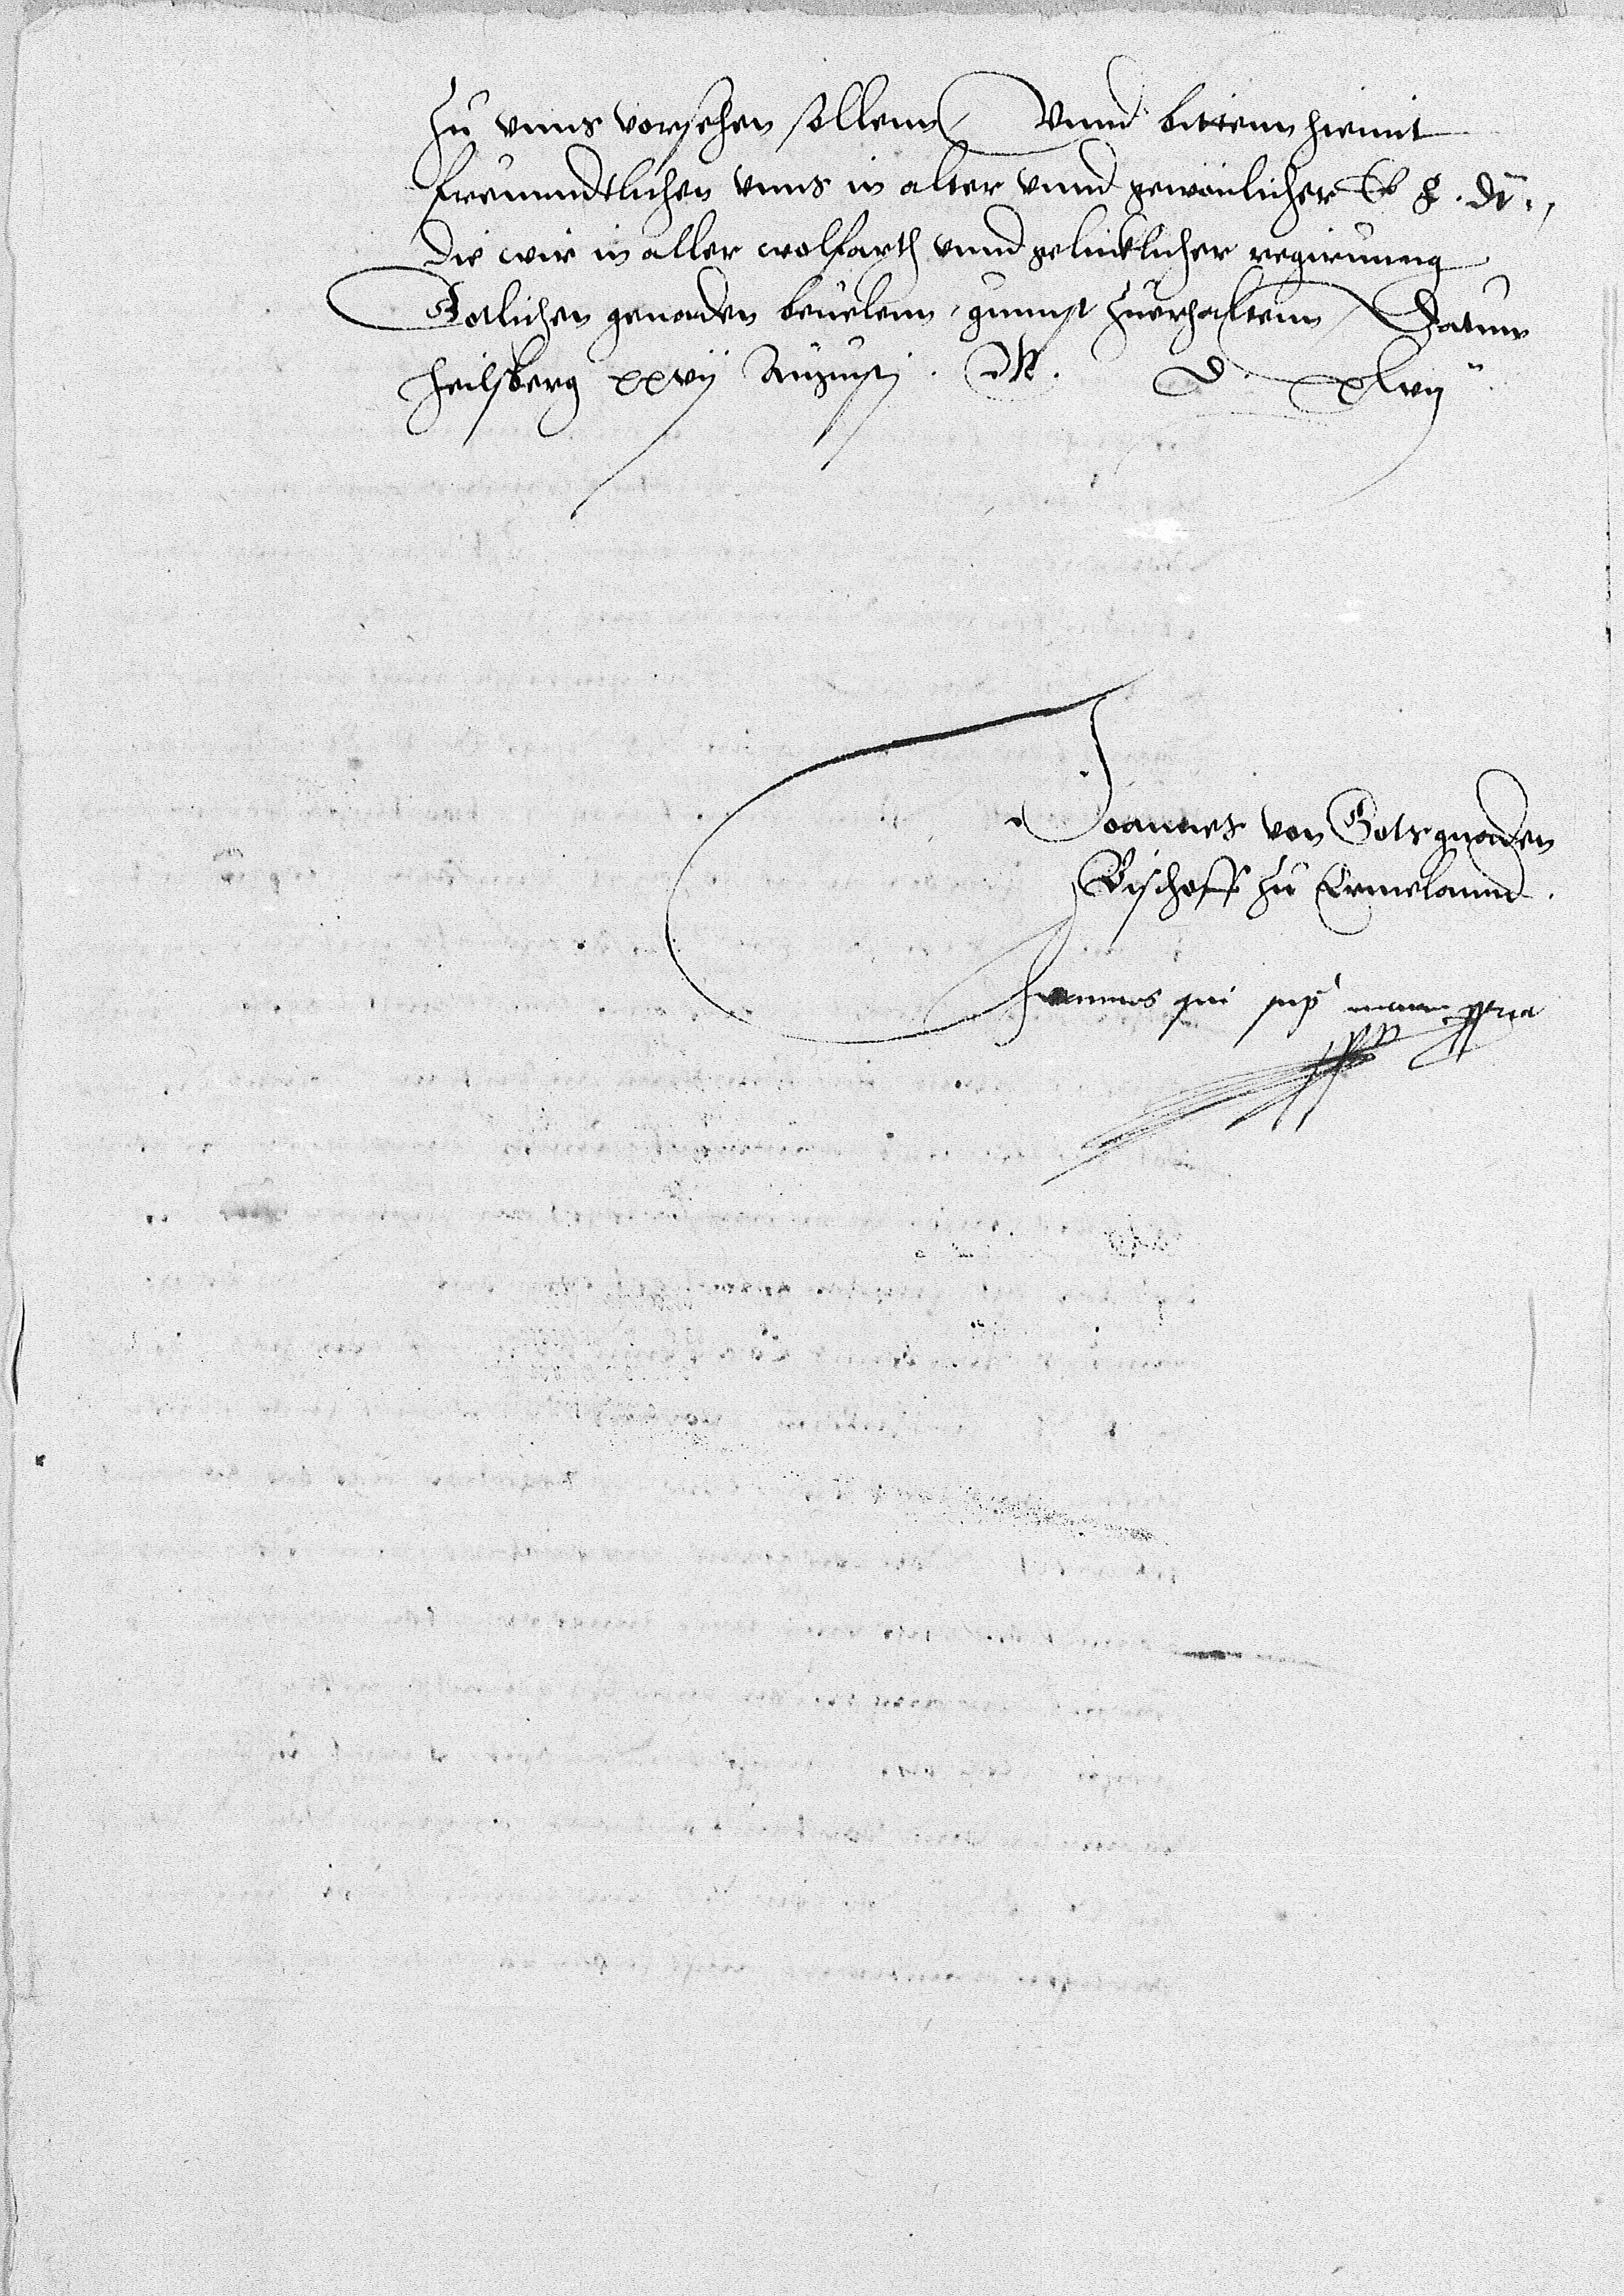 zu vnns vorsehen sollenn / Vnnd bittenn hiemit
freunndtlichen vnns in alter vnnd gewönlicher E f. dt.,
die wir in aller wolfarth vnnd gelücklicher regirunng
Gotlichen genaden beuelenn, gunnst zuerhaltenn / Datum
Heilsberg xxvij Augusti. M. D. xlvij
Joannes von Gots gnaden
Bischoff zu Ermelannd.
Joannes qui supra manu ppria